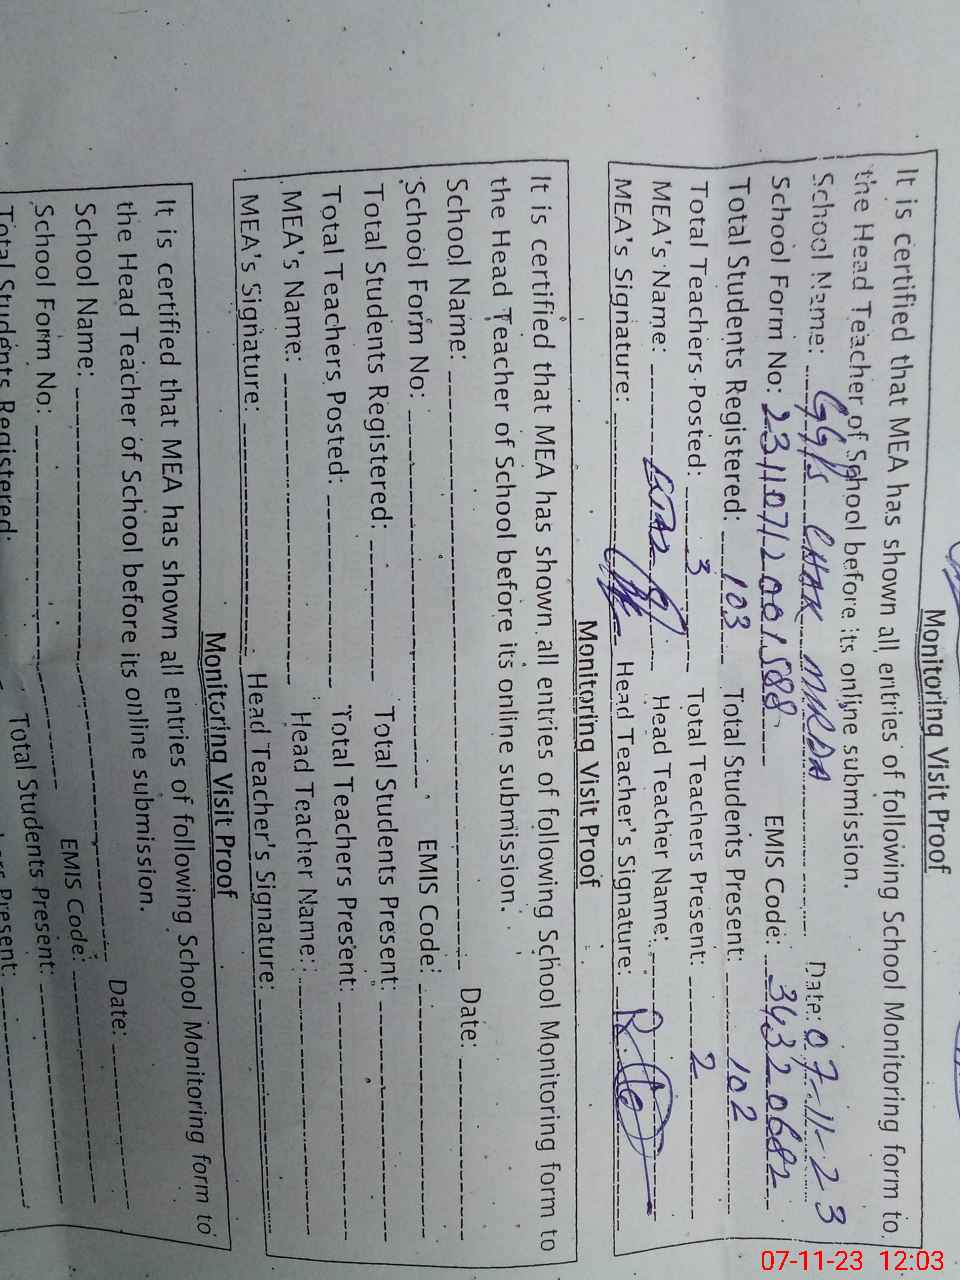 Monitoring Visit Proof
It is certified that MEA has shown all entries of following School Monitoring form to
the Head Teacher of School before its online submission.
School Name: GGPS CHAK MIRDA Date: 07-11-23
School Form No: 23110712001588 EMIS Code: 34320682
Total Students Registered: 103 Total Students Present: 102
Total Teachers Posted: 3 Total Teachers Present: 2
MEA's Name: Head Teacher Name:
MEA's Signature: Head Teacher's Signature:
Monitoring Visit Proof
It is certified that MEA has shown all entries of following School Monitoring form to
the Head Teacher of School before its online submission.
School Name: Date:
School Form No: EMIS Code:
Total Students Registered: Total Students Present:
Total Teachers Posted: Total Teachers Present:
MEA's Name: Head Teacher Name:
MEA's Signature: Head Teacher's Signature:
Monitoring Visit Proof
It is certified that MEA has shown all entries of following School Monitoring form to
the Head Teacher of School before its online submission.
School Name: Date:
School Form No: EMIS Code:
Total Students Registered: Total Students Present:
Present:
07-11-23 12:03